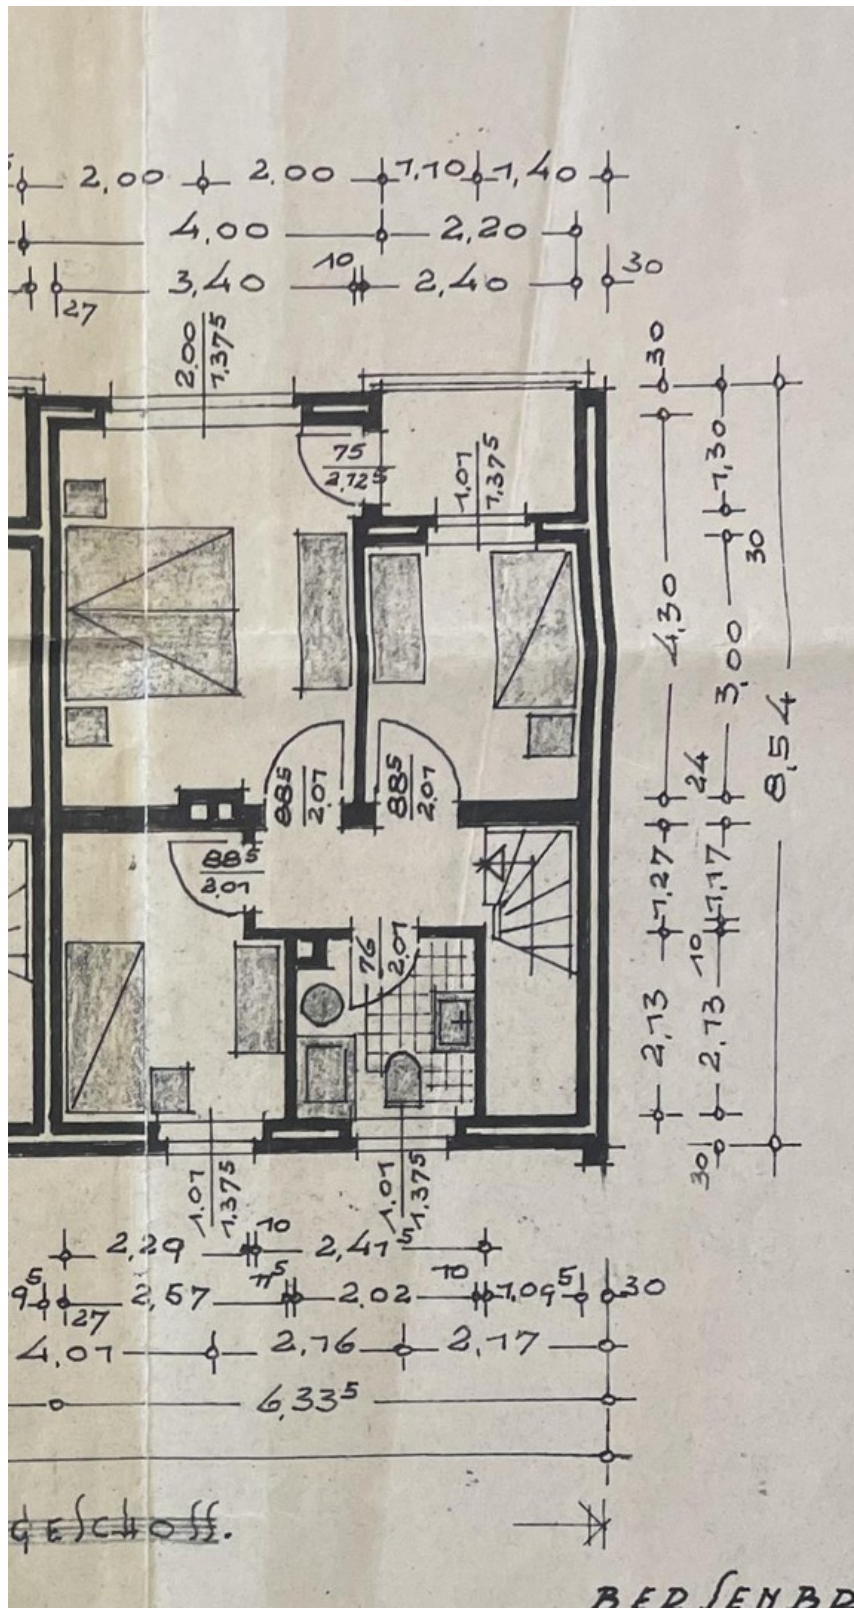 2,00 2,00 1,10 1,40
4,00 2,20
27 3,40 10 2,40 30
2.00
1,375
75
2,12⁵
1.01
1,375
30
1,30
30
4,30 3,00 8,54
24
88⁵
2,01
88⁵
2,01
88⁵
2,01
76
2,01
1,27 1,17
10
2,13 2,13
30
1.01
1,375
1.01
1,375
2,29 10 2,41⁵
9⁵ 27 2,57 11⁵ 2.02 10 1,09⁵ 30
4,01 2,16 2,17
6,33⁵
GESCHOSS.
BERSENBR